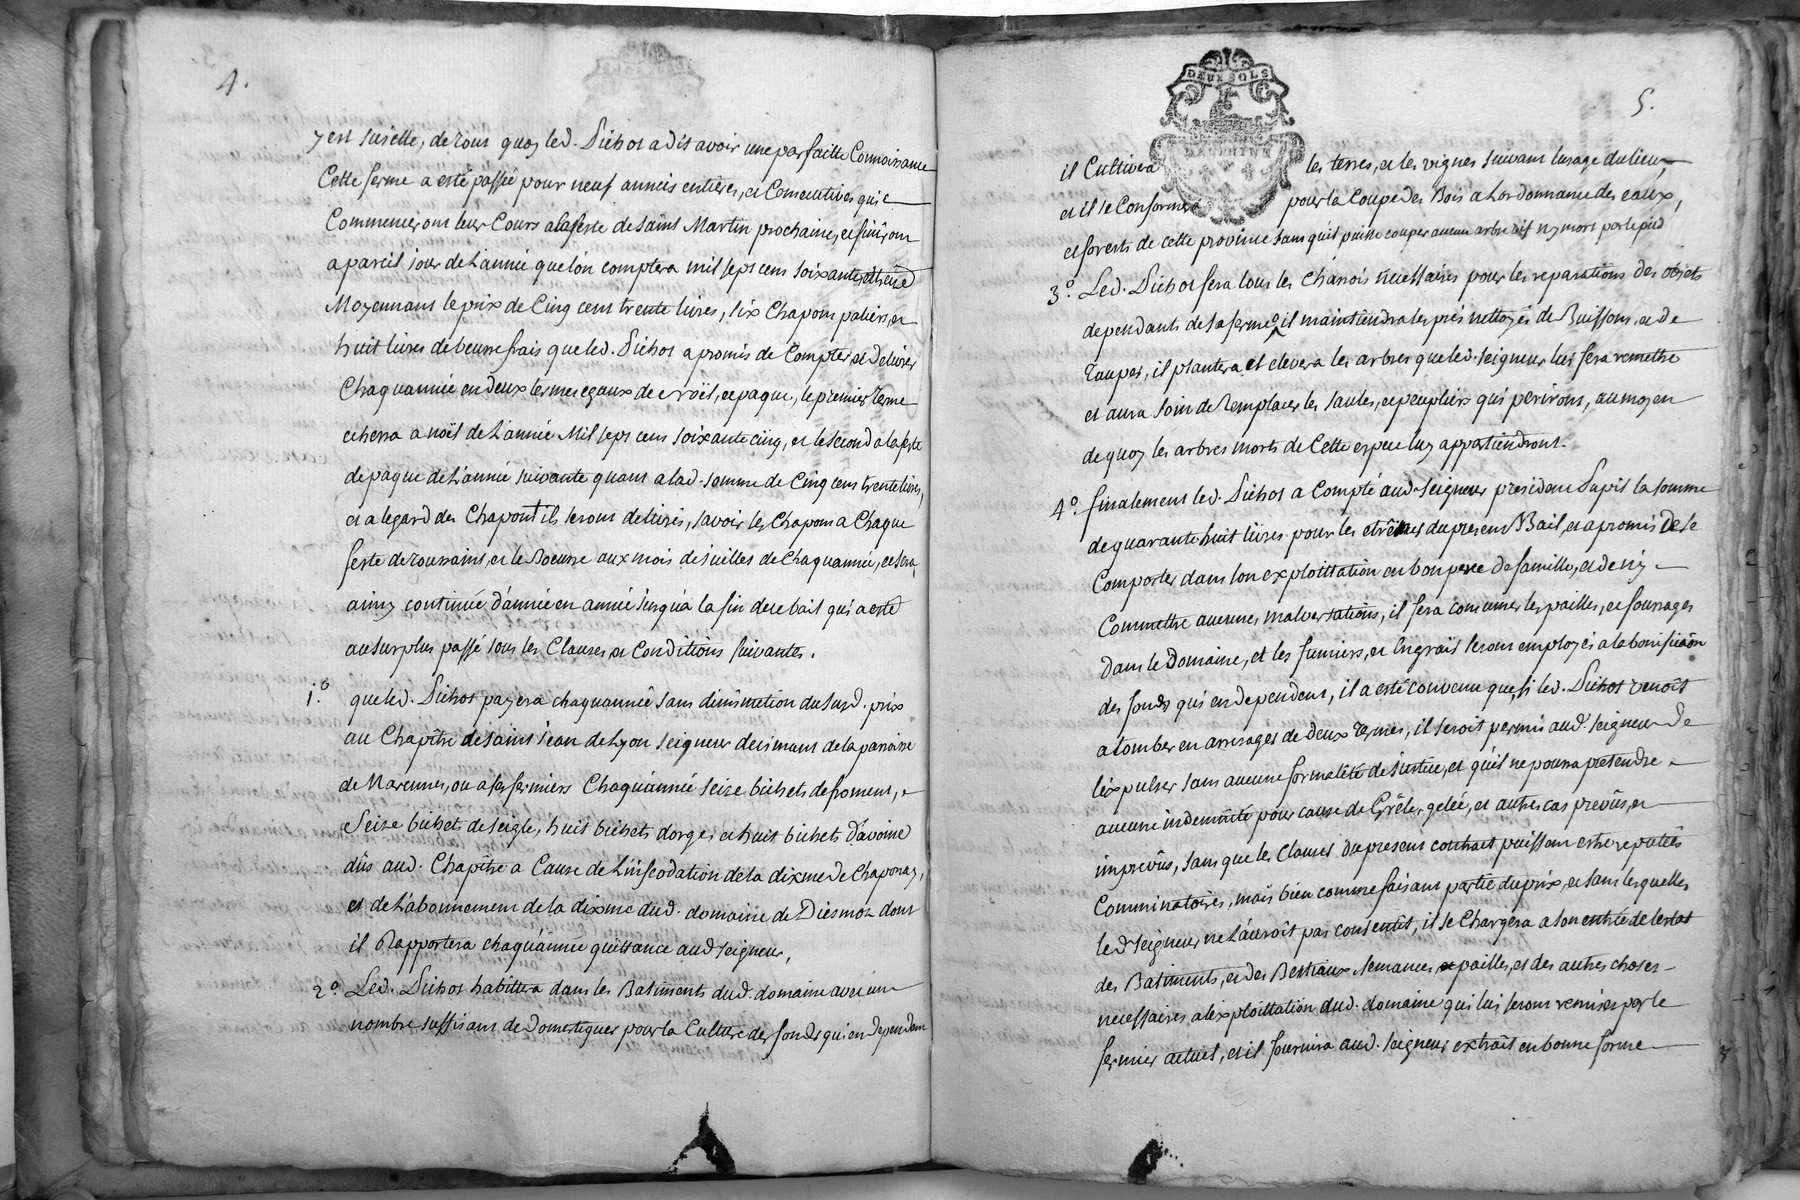 4.
y est sujette, de tous quoy led. Pichot a dit avoir une parfaitte Connoissance
Cette ferme a esté passée pour neuf années entieres, et Consecutives qui
Commenceront leur Cours a la feste de saint Martin prochaine, et finiront
a pareil jour de l'année que l'on comptera mil sept cent soixante
Moyennant le prix de Cinq cent trente livres, six Chapons paliers, et
huit livres de beurre frais que led. Pichot a promis de Compter et delivrer
Chaqu'année en deux termes egaux de noël, et paque, le premier terme
echerra a noël de l'année Mil sept cent soixante cinq, et le second a la feste
de paque de l'année suivante quant a lad. somme de Cinq cent trente livres,
et a legard des Chapons ils seront delivrés, savoir les Chapons a Chaque
feste de toussaint, et le Beurre aux mois de juillet de Chaqu'année, et sera
ainsy continué d'année en année jusqu'a la fin de ce bail qui a esté
au surplus passé sous les Clauses et Conditions suivantes.
1.° que led. Pichot payera chaqu'année sans diminution du susd. prix
au Chapitre de saint jean de Lyon seigneur decimant de la paroisse
de Marennes, ou a ses fermiers Chaqu'année seize bichets de froment,
Seize bichets de seigle, huit bichets d'orge, et huit bichets d'avoine
dûs aud. Chapitre a Cause de L'infeodation de la dixme de Chaponay,
et de L'abonnement de la dixme dud. domaine de Diesmoz dont
il Rapportera chaqu'année quittance aud seigneur,
2.° Led. Pichot habittera dans les Batiments dud. domaine avec un
nombre suffisant de Domestiques pour la Culture des fonds qui en dependent
DEUX SOLS
DAUPHINE
5.
il Cultivera les terres, et les vignes suivant l'usage du lieu,
et il se Conformera pour la Coupe des Bois a L'ordonnance des eaux,
et forests de cette province sans qu'il puisse couper aucun arbre vif ny mort par le pied
3.° Led. Pichot fera tous les Charrois necessaires pour les reparations des objets
dependants de sa ferme, il maintiendra les prés nettoyés de Buissons, et de
Taupes, il plantera et elevera les arbres que led. seigneur lui fera remettre
et aura soin de Remplacer les saules, et peupliers qui periront, au moyen
de quoy les arbres morts de Cette espece luy appartiendront.
4.° finalement led. Pichot a Compté aud. seigneur president Dupis la somme
de quarante huit livres pour les etrênes du present Bail, et a promis de se
Comporter dans son exploittation en bon pere de famille, et de n'y
Commettre aucunes malversations, il fera consumer les pailles, et fourrages
Dans le Domaine, et les fumiers, et Engrais seront employés a la bonification
des fonds qui en dependent, il a esté convenu que si led. Pichot venoit
a tomber en arrerages de deux Termes, il seroit permis aud. seigneur de
l'expulser sans aucune formalité de justice, et qu'il ne pourra pretendre
aucune indemnité pour cause de Grêle, gelée, et autres cas prevûs, et
imprevûs, sans que les Clauses du present contrat puissent estre reputées
Comminatoires, mais bien comme faisant partie du prix, et sans lesquelles
led seigneur ne L'auroit pas consentit, il se Chargera a son entrée de l'estat
des Batiments, et des Bestiaux semances et pailles, et des autres choses
necessaires a l'exploittation dud. domaine qui lui seront remises par le
fermier actuel, et il fournira aud. seigneur extrait en bonne forme